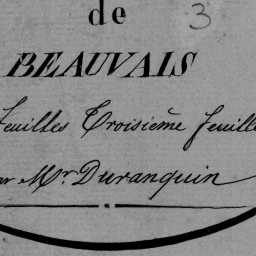 de 3
BEAUVAIS
feuilles Troisième feuille
Mr. Duranquin